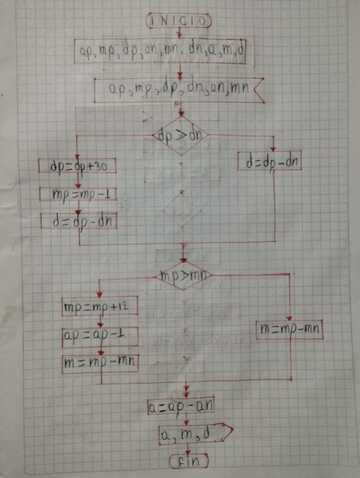 INICIO
ap, mp, dp, an, mn, dn, a, m, d
ap, mp, dp, dn, an, mn
dp > dn
dp = dp + 30
d = dp - dn
mp = mp - 1
d = dp - dn
mp > mn
mp = mp + 12
m = mp - mn
ap = ap - 1
m = mp - mn
a = ap - an
a, m, d
Fin